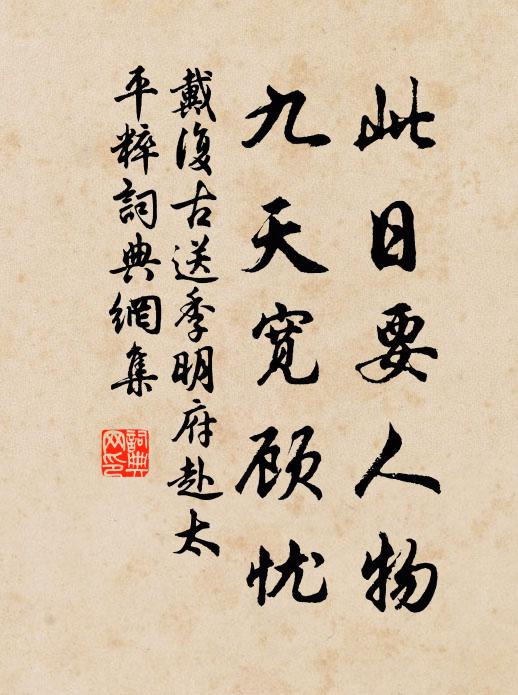 此日要人物
九天宽顾忧
戴復古送季明府赴太
平粹詞典網集
詞典
网印